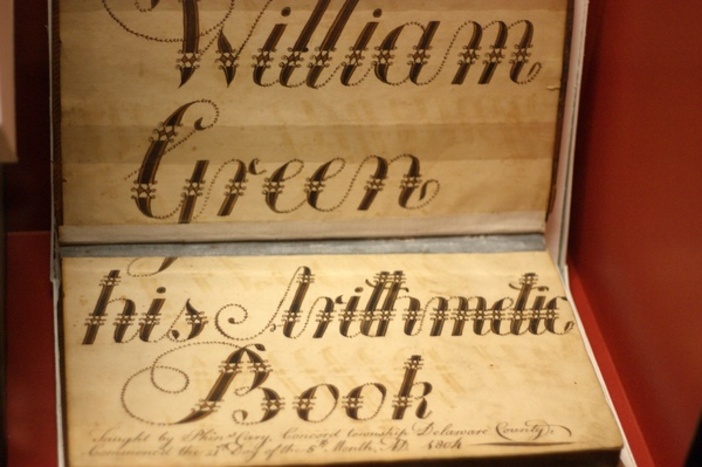 William
Green
his Arithmetic
Book
Taught by Phins Cary, Concord township Delaware County,
Commenced the Day of the 8th Month, AD 1804